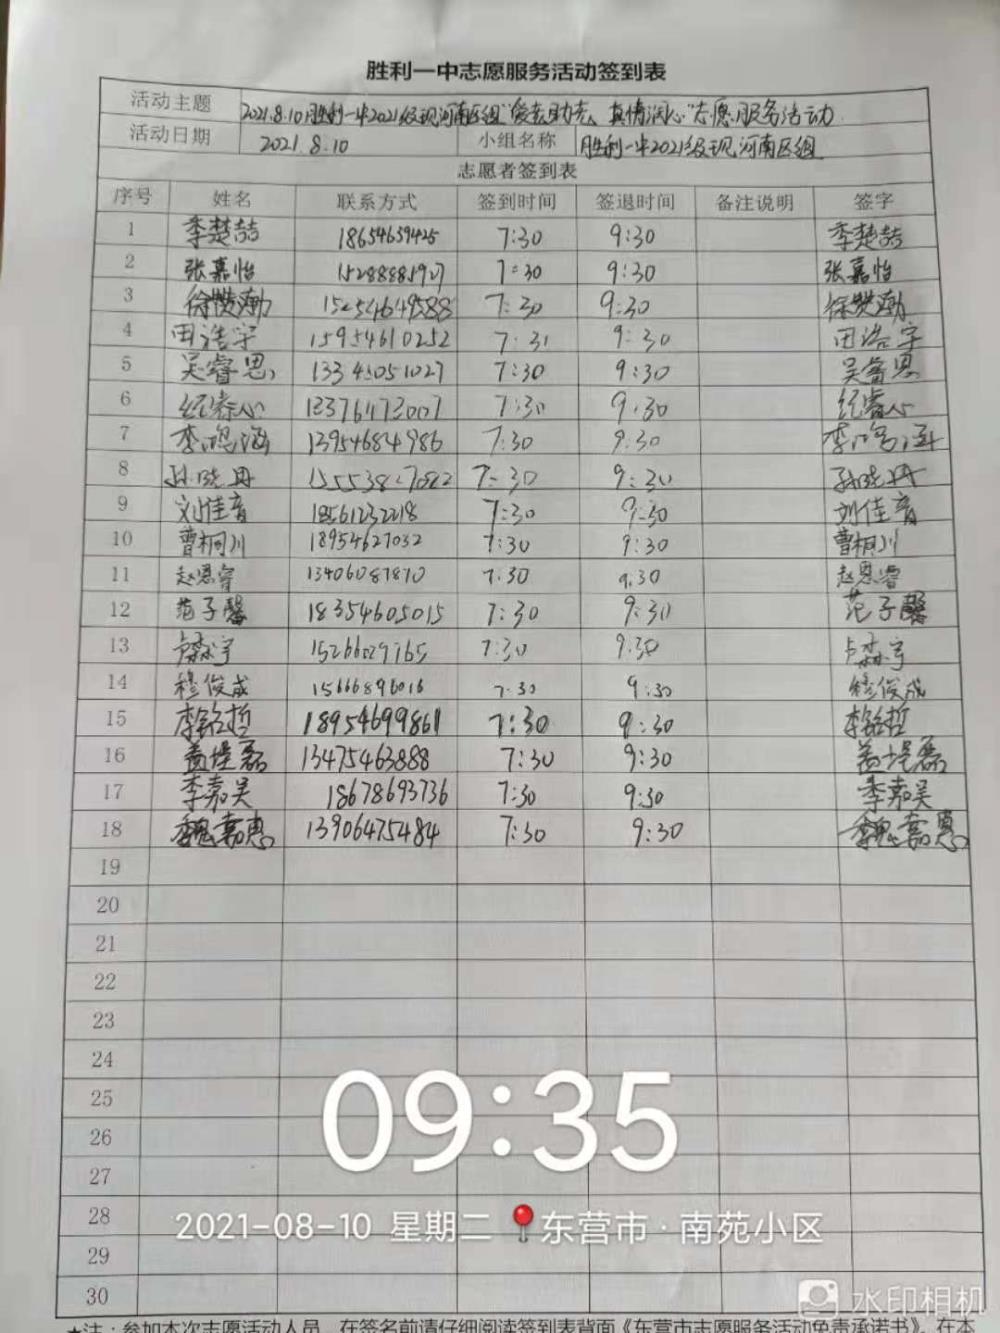 胜利一中志愿服务活动签到表
活动主题 2021.8.10胜利一中2021级现河南区组"爱老助老、真情润心"志愿服务活动
活动日期 2021.8.10 小组名称 胜利一中2021级现河南区组
志愿者签到表
序号 姓名 联系方式 签到时间 签退时间 备注说明 签字
1 季楚喆 18654659425 7:30 9:30 季楚喆
2 张嘉怡 15288881927 7:30 9:30 张嘉怡
3 7:30 9:30
4 田浩宇 15954610252 7:31 9:30 田浩宇
5 吴睿思 7:30 9:30 吴睿思
6 纪睿心 7:30 9:30 纪睿心
7 李鸣涵 13954684986 7:30 9:30 李鸣涵
8 孙晓丹 7:30 9:30 孙晓丹
9 刘佳音 18561232218 7:30 9:30 刘佳音
10 曹桐川 18954627032 7:30 9:30 曹桐川
11 赵恩睿 13406087870 7:30 9:30 赵恩睿
12 范子馨 18354605015 7:30 9:30 范子馨
13 卢森宇 7:30 9:30 卢森宇
14 穆俊成 15666896016 7:30 9:30 穆俊成
15 李铭哲 18954699861 7:30 9:30 李铭哲
16 盖堤磊 13475463888 7:30 9:30 盖堤磊
17 李嘉昊 18678693736 7:30 9:30 李嘉昊
18 魏嘉惠 13906475484 7:30 9:30 魏嘉惠
19
20
21
22
23
24
25
26
27
28
29
30
09:35
2021-08-10 星期二 东营市·南苑小区
水印相机
★注：参加本次志愿活动人员，在签名前请仔细阅读签到表背面《东营市志愿服务活动免责承诺书》，在本